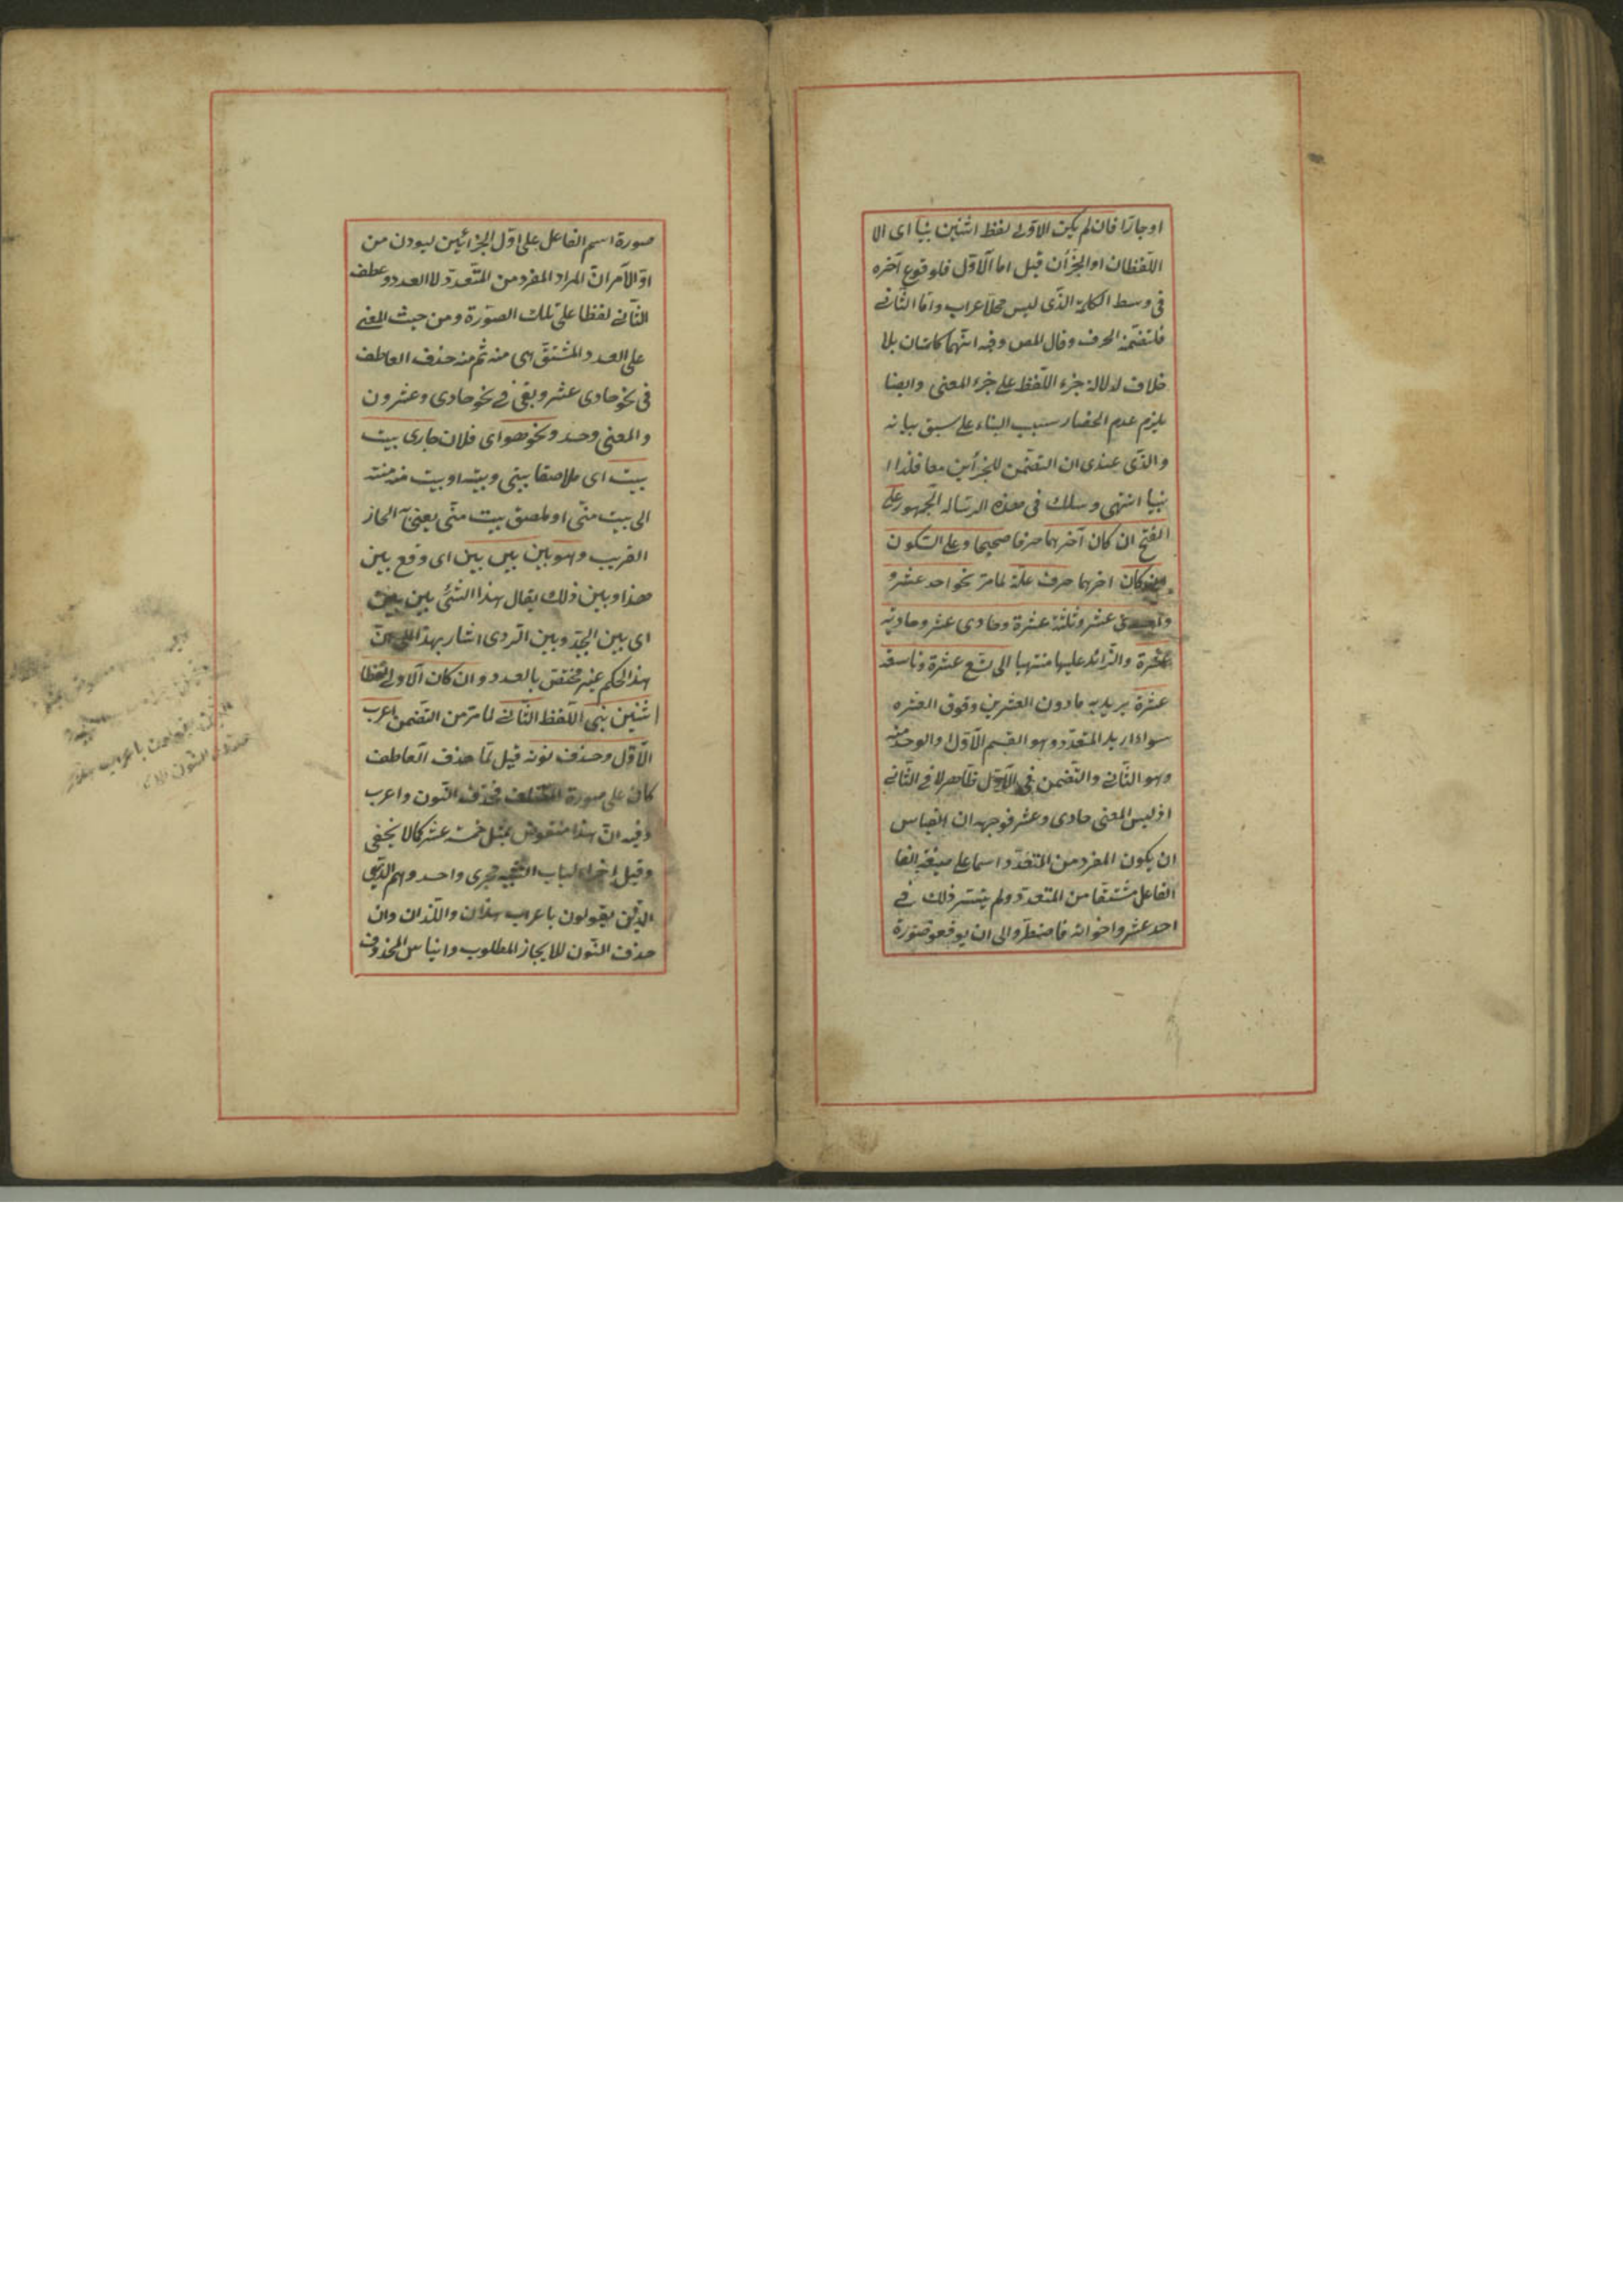 او جارّا فان لم يكن الاوّل لفظ اثنين بنيا اى الا
اللّفظان او الجزأن قيل اما الاوّل فلوقوع آخره
فى وسط الكلمة الذّى ليس محلّ اعراب وامّا الثّانى
فلتضمّنه الحرف وقال المص وفيه انّهما كلمتان بلا
خلاف لدلالة جزء اللّفظ على جزء المعنى وايضا
يلزم عدم انحصار سبب البناء على سبق بيانه
والذّى عندى ان التضمّن للجزأين معا فلذا ا
بنيا انتهى وسلك فى هذه الرساله الجمهور على
الفتح ان كان آخرهما حرفا صحيحا وعلى السّكون
كان اخرهما حرف علّة لما مرّ نحو احد عشر و
عشر وثلثة عشرة وحادى عشر وحادية
عشرة والزّائد عليها منتهيا الى تسع عشرة وتاسعة
عشرة يريد به ما دون العشرين وفوق العشرة
سواء اريد المتعدّد وهو القسم الاوّل او الوحد منه
وهو الثّانى والتّضمن فى الاوّل ظاهر لا فى الثّانى
اذ ليس المعنى حادى وعشر فوجهه ان القياس
ان يكون المفرد من المتعدّد اسما على صيغة الفا
الفاعل مشتقّا من المتعدّد ولم يتيسّر ذلك فى
احد عشر واخواته فاضطرّوا الى ان يوقعو صورة
صورة اسم الفاعل على اوّل الجزأين ليوذن من
اوّل الامر انّ المراد المفرد من المتعدّد لا العدد وعطف
الثّانى لفظا على تلك الصّورة ومن حيث المعنى
على العدد المشتقّ اى منه ثم منه حذف العاطف
فى نحو حادى عشر وبقى فى نحو حادى وعشرون
والمعنى وحد ونحو هو اى فلان جارى بيت
بيت اى ملاصقا بيتى وبيته او بيت منه منته
الى بيت منّى او ملصق بيت منّى يعنى الجار
القريب وهو بين بين بين اى وقع بين
هذا وبين ذلك يقال هذا الشّئ بين بين
اى بين الجيّد وبين الرّدى اشار بهذا الى انّ
هذا الحكم غير مختصّ بالعدد وان كان الاوّل لفظا
اثنين بنى اللّفظ الثّانى لما مرّ من التّضمن اعرب
الاوّل وحذف نونه قيل لمّا حذف العاطف
كان على صورة فحذف النّون واعرب
وفيه انّ هذا منقوض بمثل خمسة عشر كما لا يخفى
وقيل اجراء لباب التّثنية مجرى واحد وهم الّذين
الّذين يقولون باعراب هذان واللّذان وان
حذف النّون للايجاز المطلوب وانباس المحذوف
يقولون باعراب
النّون